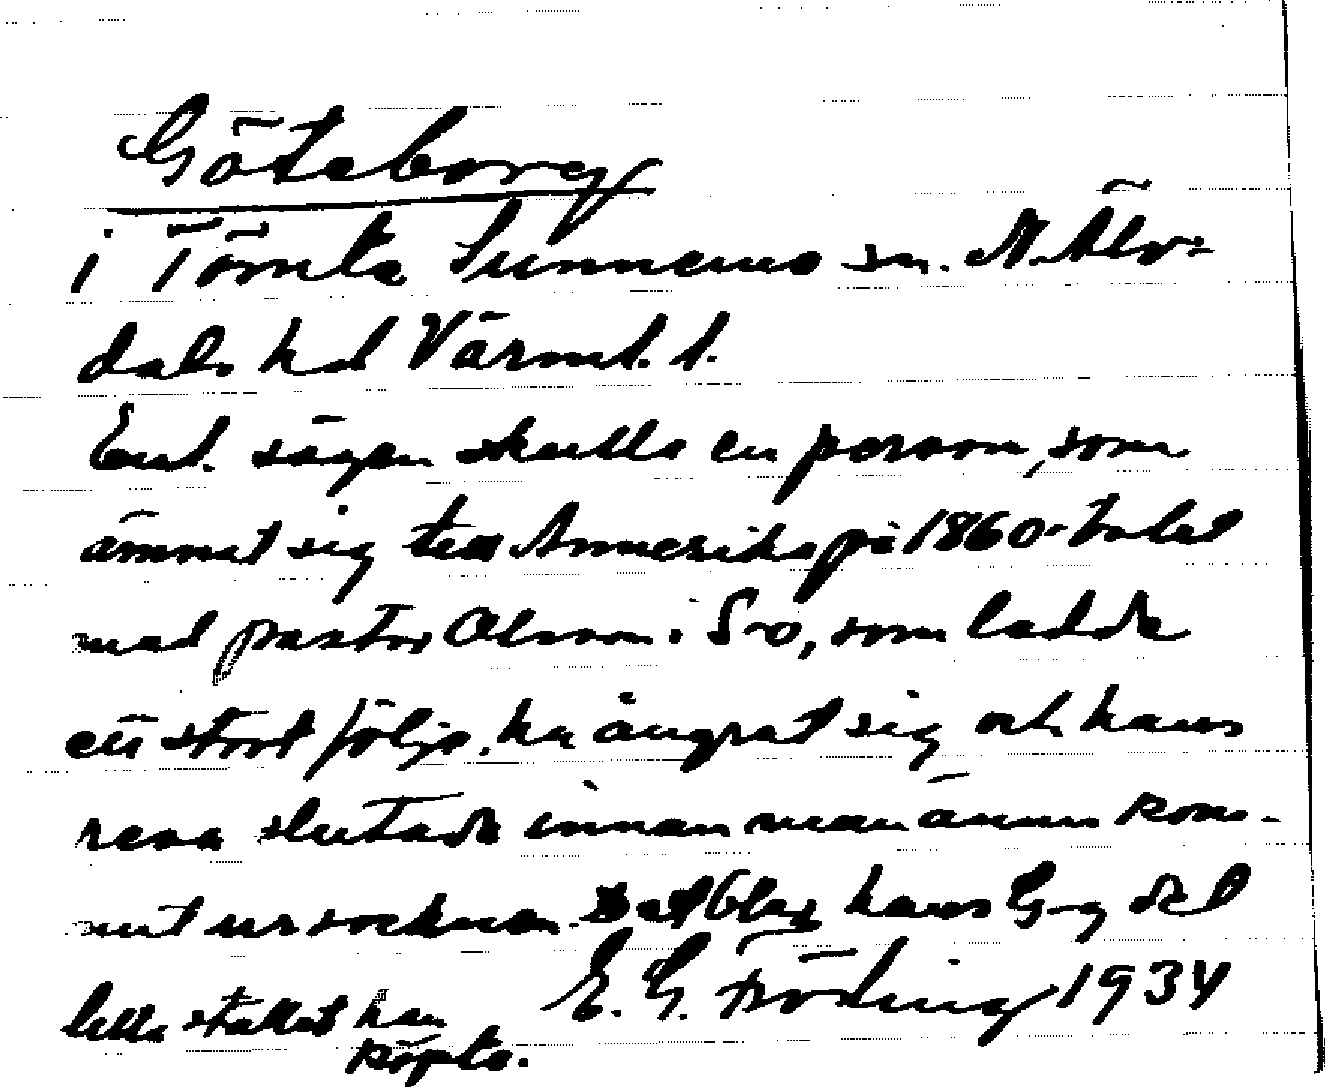 Göteborg
i Tömta Sunnemo sn. N. Älv-
dals hd Värml. l.
Enl. sägen skulle en person, som
ämnat sig till Ammerika på 1860-talet
med pastor Olsson i S-o, som ladde
ett stort följe, ha ångrat sig och hans
resa slutade innan man ännu kom-
mit ur socknen. Det blev hans G-g det
lilla stället han
köpte.
E. G. Fröding 1934